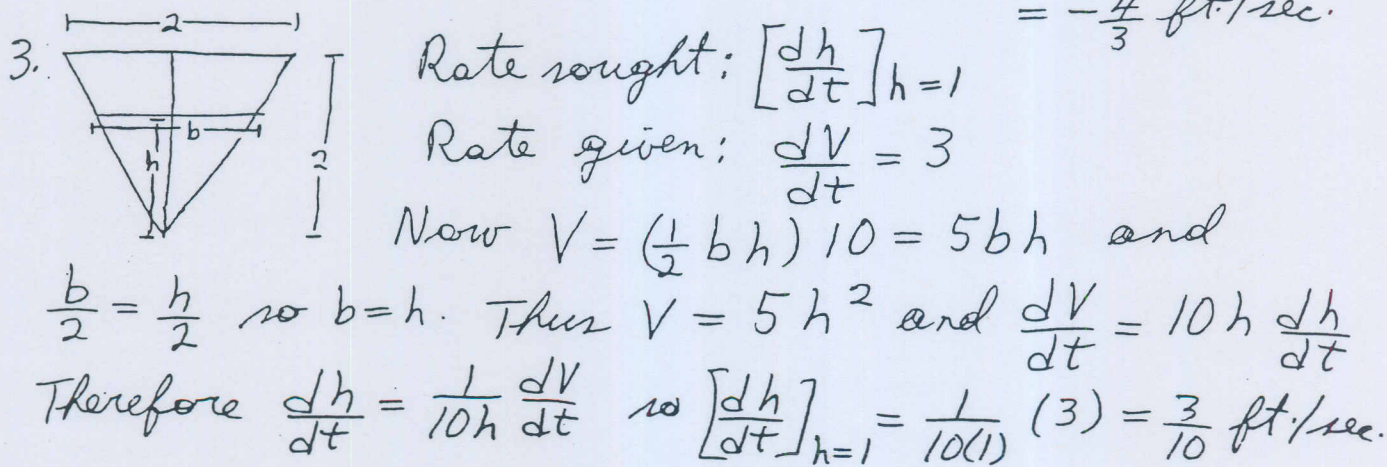 = -4/3 ft./sec.
2
3.
Rate sought: [dh/dt]h=1
b
h
2
Rate given: dV/dt = 3
Now V = (1/2 bh) 10 = 5bh and
b/2 = h/2 so b=h. Thus V = 5h² and dV/dt = 10h dh/dt
Therefore dh/dt = 1/10h dV/dt so [dh/dt]h=1 = 1/10(1) (3) = 3/10 ft./sec.